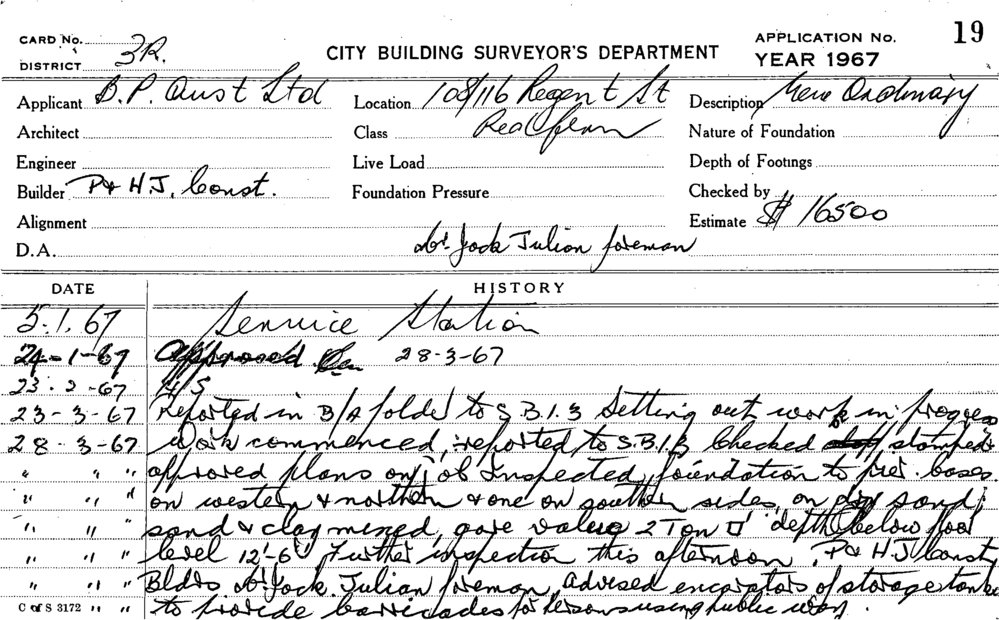 CARD No. APPLICATION No. 19
DISTRICT 3R. CITY BUILDING SURVEYOR'S DEPARTMENT YEAR 1967
Applicant B.P. Aust Ltd Location 108/116 Regent St Description New Ordinary
Architect Class Redfern Nature of Foundation
Engineer Live Load Depth of Footings
Builder P & H.J. Const. Foundation Pressure Checked by
Alignment Estimate $ 16500
D.A. Mr. Jock Julian foreman
DATE HISTORY
5.1.67 Service Station
24-1-67 Approved 28-3-67
23.2-67 4/5
23-3-67 Reported in B/A folder to S.B.I.3 Setting out work in progress
28-3-67 Work commenced, reported to S.B.I.3 Checked stamped
" " " approved plans on job Inspected foundation to pier bases
" " " on western & northern & one on southern sides, on dry sand,
" " " sand & clay mixed, gave value 2 Ton □' depth below floor
" " " level 12'-6" Further inspection this afternoon. P & H.J. Consty
" " " Bldrs Mr Jock Julian foreman, advised excavators of storage tanks
C of S 3172 " " to provide barricades for persons using public way.